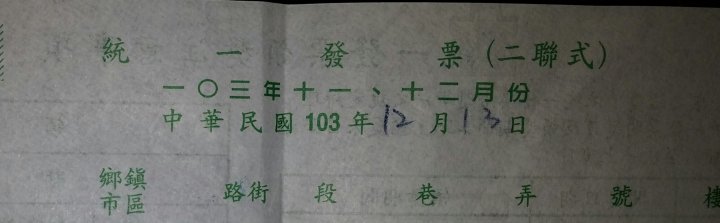 統一發票(二聯式)
一〇三年十一、十二月份
中華民國103年12月13日
鄉鎮
市區 路街 段 巷 弄 號 樓